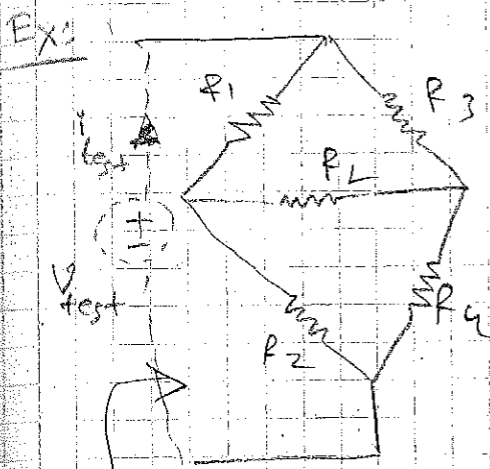 Ex:
R1
R3
i test
RL
+
-
V test
R2
R4